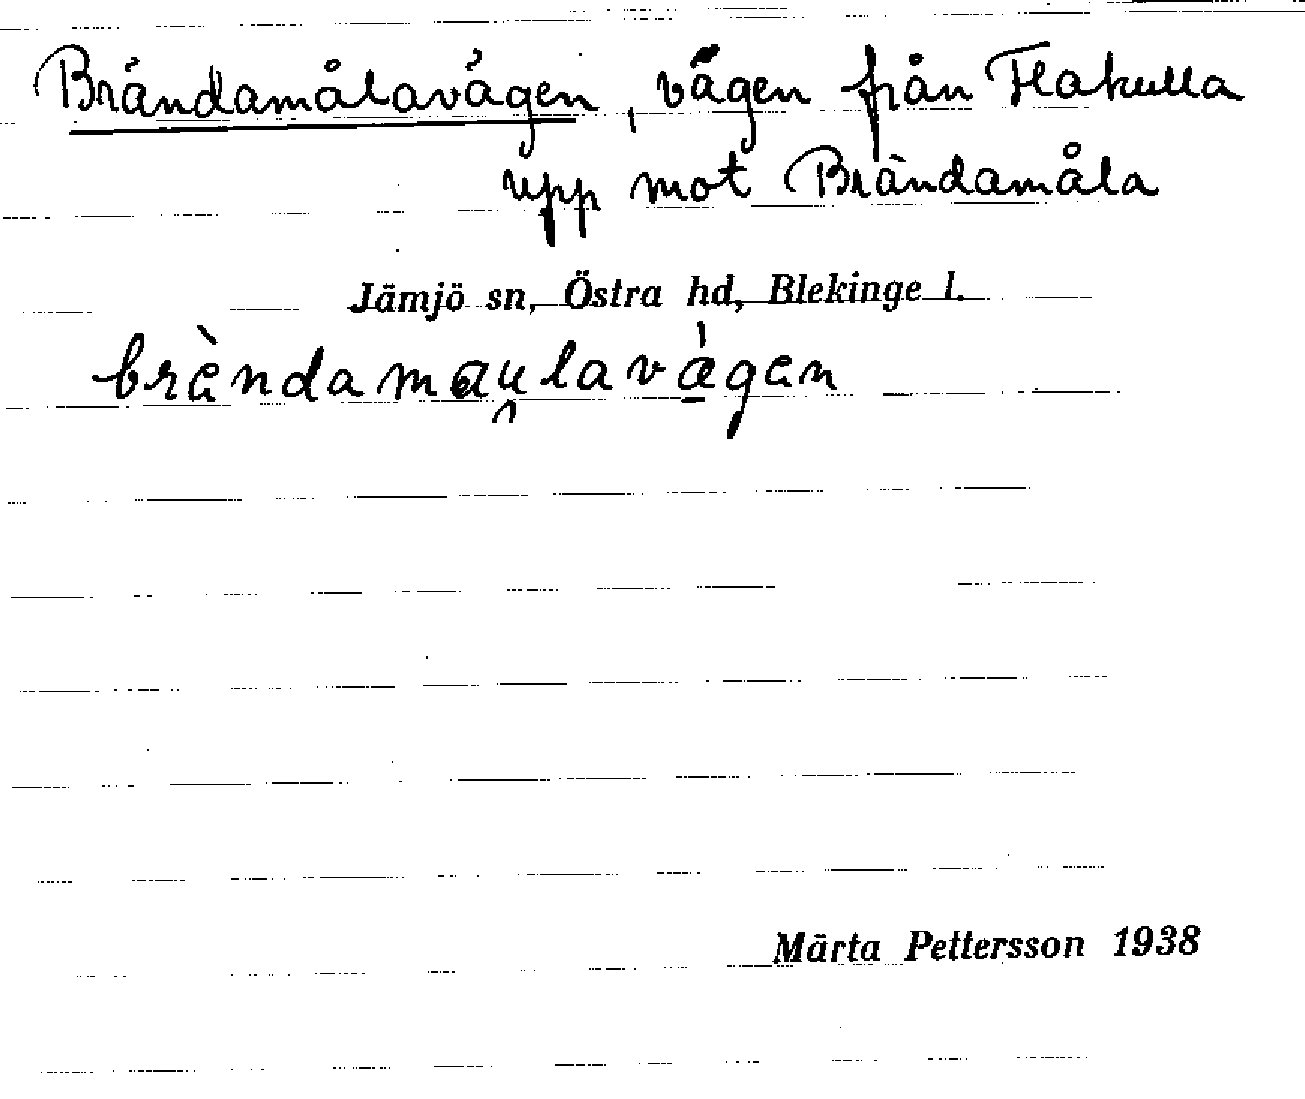 Brändamålavägen, vägen från Flakulla
upp mot Brändamåla
Jämjö sn, Östra hd, Blekinge l.
brὲndamau̯lavǽgen
Märta Pettersson 1938